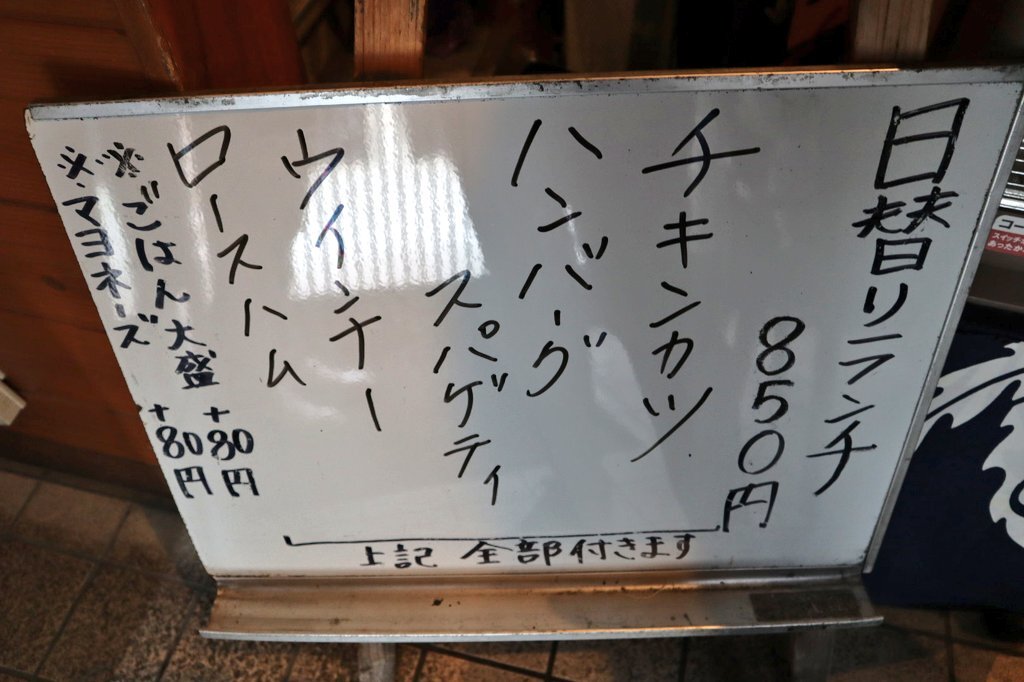 日替りランチ
850円
チキンカツ
ハンバーグ
スパゲティ
ウインナー
ロースハム
※ごはん大盛 +80円
※マヨネーズ +80円
上記 全部付きます